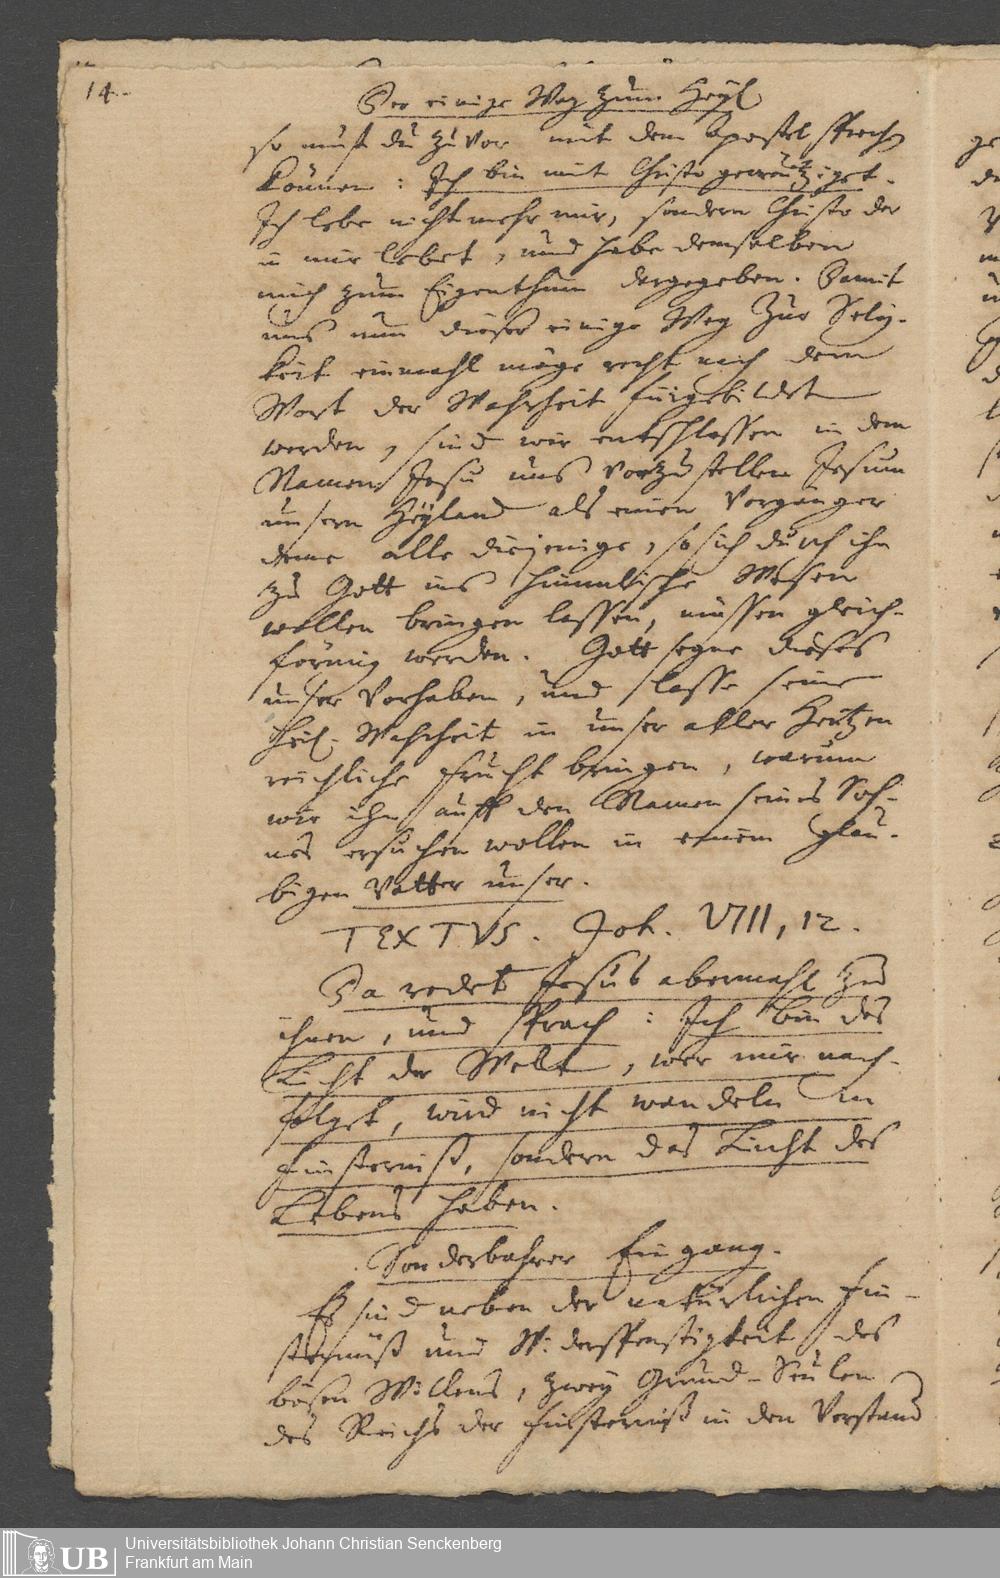 14.
Der einige Weg zum Heyl
so must du zuvor mit dem Apostel sprech
können: Ich bin mit Christo gecreutziget.
Ich lebe nicht mehr mir, sondern Christo der
in mir lebet, und habe demselben
mich zum Eigenthum dargegeben. Damit
uns nun dieser einige Weg zur Selig-
keit einmahl möge recht nach dem
Wort der Wahrheit fürgebildet
werden, sind wir entschlossen in dem
Namen Jesu uns vorzustellen Jesum
unsern Heyland als einen Vorgänger
deme alle diejenige, so sich durch ihn
zu Gott ins himmlische Wesen
wollen bringen lassen, müssen gleich-
förmig werden. Gott segne dieses
unser Vorhaben, und lasse seine
heil. Wahrheit in unser aller Hertzen
reichliche Frucht bringen, warum
wir ihn auff den Namen seines Soh-
nes ersuchen wollen in einem glau-
bigen Vatter unser.
TEXTVS. Joh. VIII, 12.
Da redet Jesus abermahl zu
ihnen, und sprach: Ich bin das
Licht der Welt, wer mir nach-
folget, wird nicht wandeln in
Finsterniß, sondern das Licht des
Lebens haben.
Sonderbahrer Eingang.
Es sind neben der natürlichen Fin-
sternüß und Widerspenstigkeit des
bösen Willens, zwey Grund-Seulen
des Reichs der Finsterniß in den Verstand
UB
Universitätsbibliothek Johann Christian Senckenberg
Frankfurt am Main